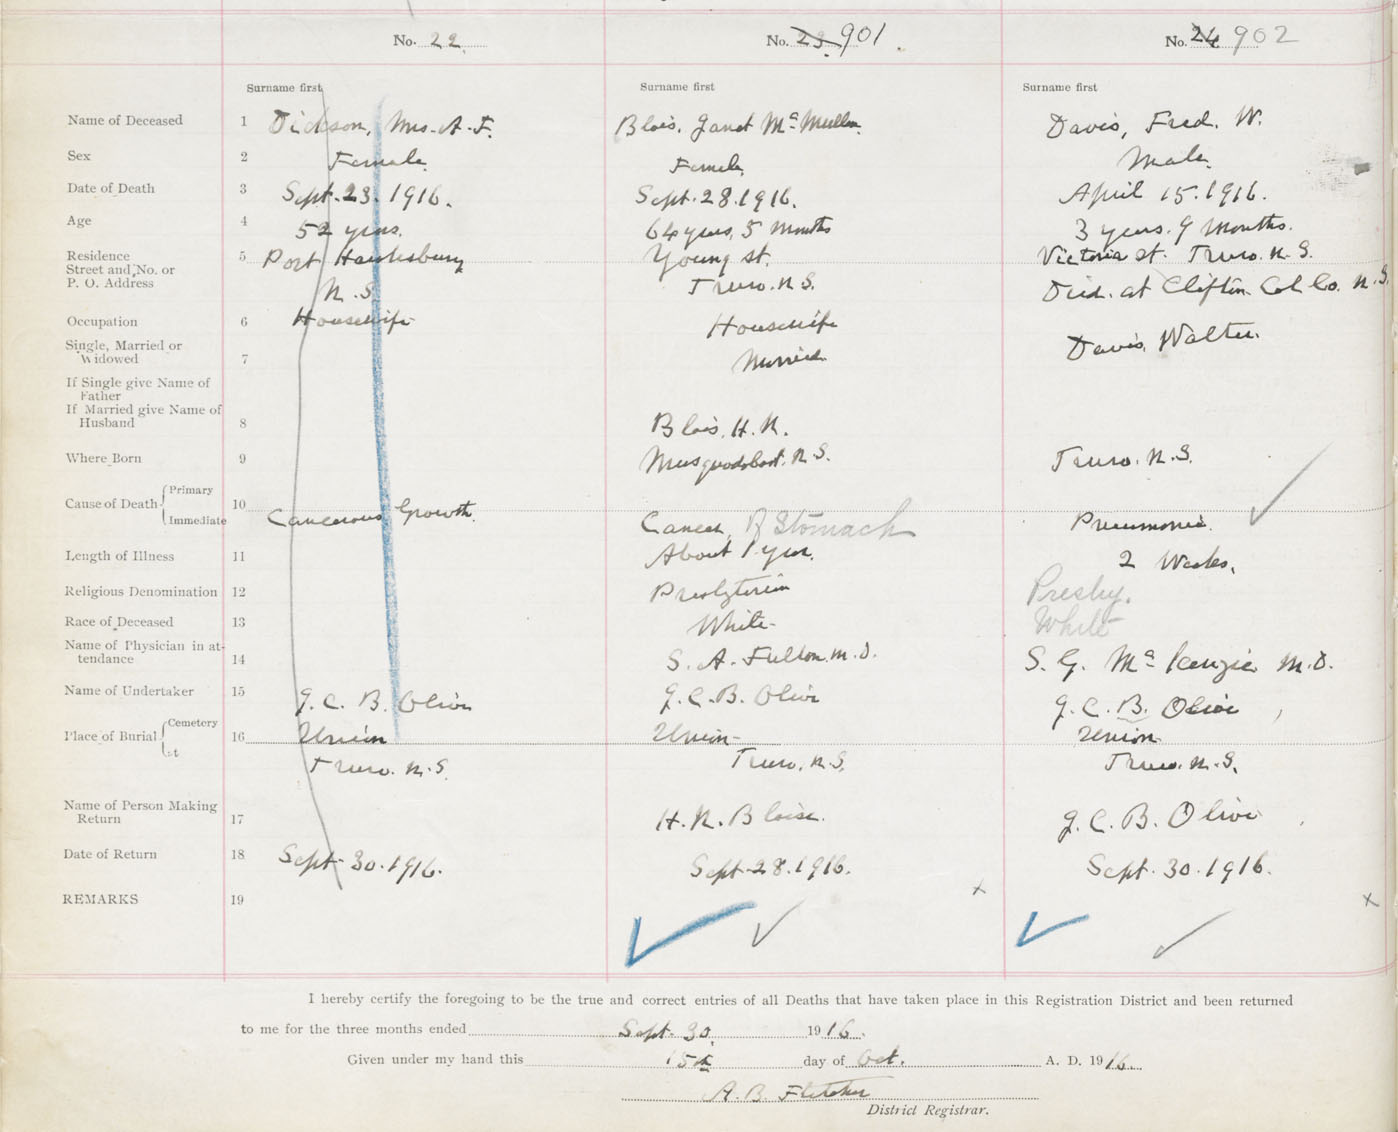 No. 22
No. 23. 901
No. 24 902
Surname first
Surname first
Surname first
Name of Deceased 1 Dickson, Mrs. A. F. Blois, Janet McMullen Davis, Fred. W.
Sex 2 Female Female Male
Date of Death 3 Sept. 23. 1916. Sept. 28. 1916. April 15. 1916.
Age 4 52 years. 64 years, 5 Months 3 years. 9 Months.
Residence 5 Port Hawkesbury Young St. Victoria St. Truro. N. S.
Street and No. or
P. O. Address N. S. Truro. N. S. Died. at Clifton Col. Co. N. S.
Occupation 6 Housewife Housewife
Single, Married or
Widowed 7 Married Davis, Walter.
If Single give Name of
Father
If Married give Name of
Husband 8 Blois, H. N.
Where Born 9 Musquodoboit. N. S. Truro. N. S.
Cause of Death Primary 10
Immediate Cancerous Growth. Cancer, of Stomach Pneumonia.
Length of Illness 11 About 1 year. 2 Weeks.
Religious Denomination 12 Presbyterian Presby.
Race of Deceased 13 White White
Name of Physician in at-
tendance 14 S. A. Fulton. M. D. S. G. McKenzie M. D.
Name of Undertaker 15 J. C. B. Olive J. C. B. Olive J. C. B. Olive
Place of Burial Cemetery 16 Union Union Union
At Truro. N. S. Truro, N. S. Truro. N. S.
Name of Person Making
Return 17 H. N. Bloise. J. C. B. Olive
Date of Return 18 Sept. 30. 1916. Sept. 28. 1916. Sept. 30. 1916.
REMARKS 19
I hereby certify the foregoing to be the true and correct entries of all Deaths that have taken place in this Registration District and been returned
to me for the three months ended Sept. 30. 1916.
Given under my hand this 15th day of Oct. A. D. 1916.
A. B. Fletcher
District Registrar.